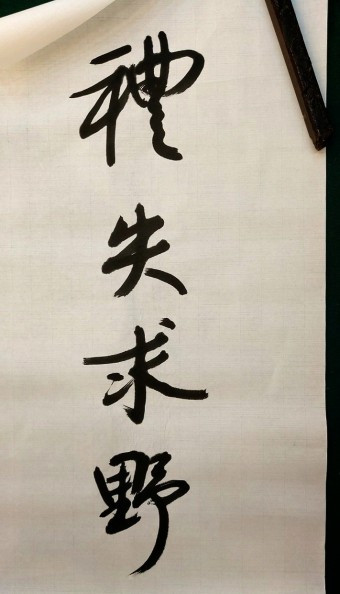 禮失求野